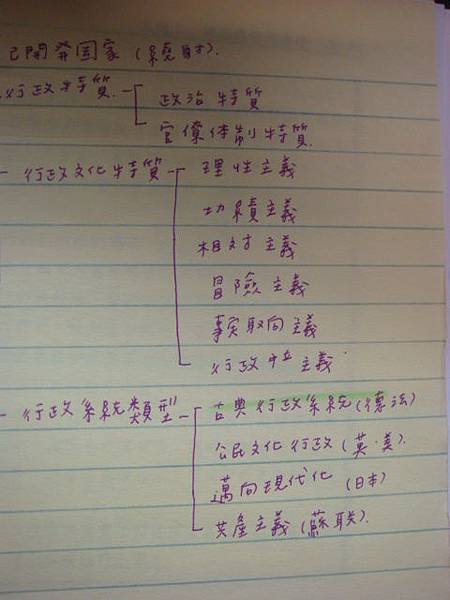 已開発国家(績効).
行政特質 政治特質
官僚体制特質
一 行政文化特質 理性主義
功績主義
相対主義
冒險主義
事実取向主義
行政中立主義
一 行政系統類型 古典行政系統(德法)
公民文化行政(英.美).
邁向現代化(日本)
共產主義(蘇联).